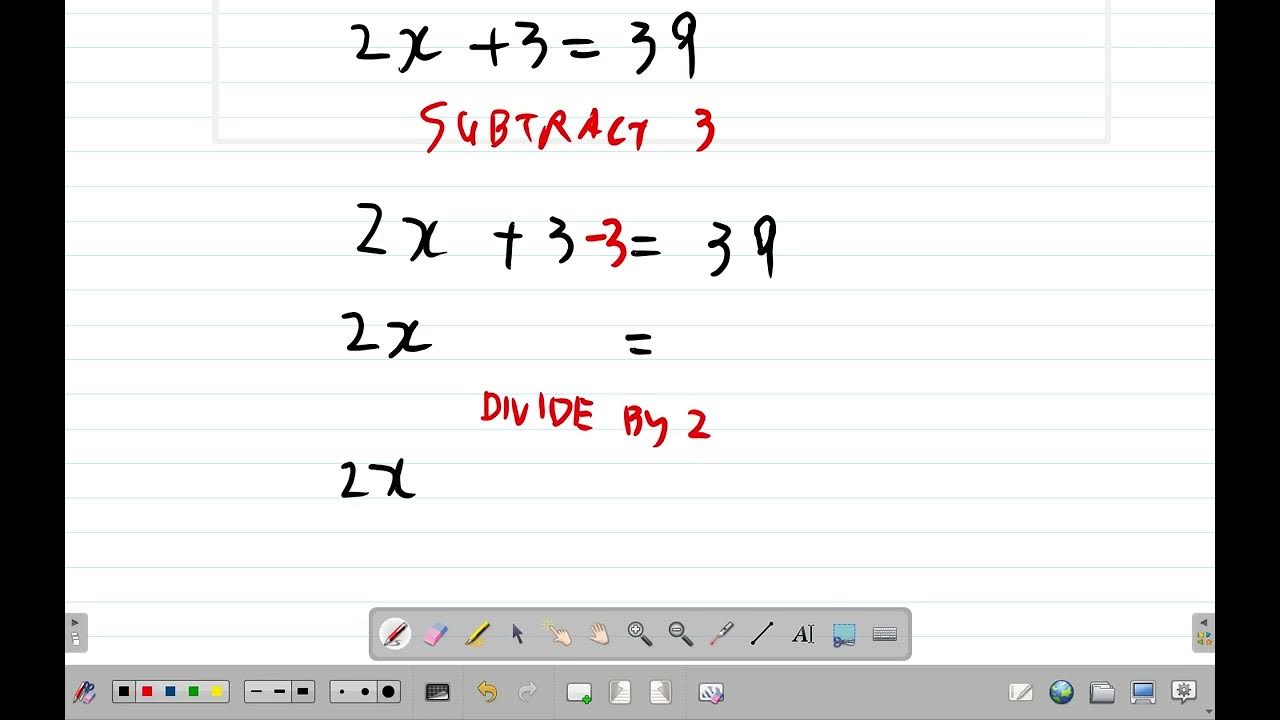 2x + 3 = 39
SUBTRACT 3
2x + 3 - 3 = 39
2x =
DIVIDE By 2
2x